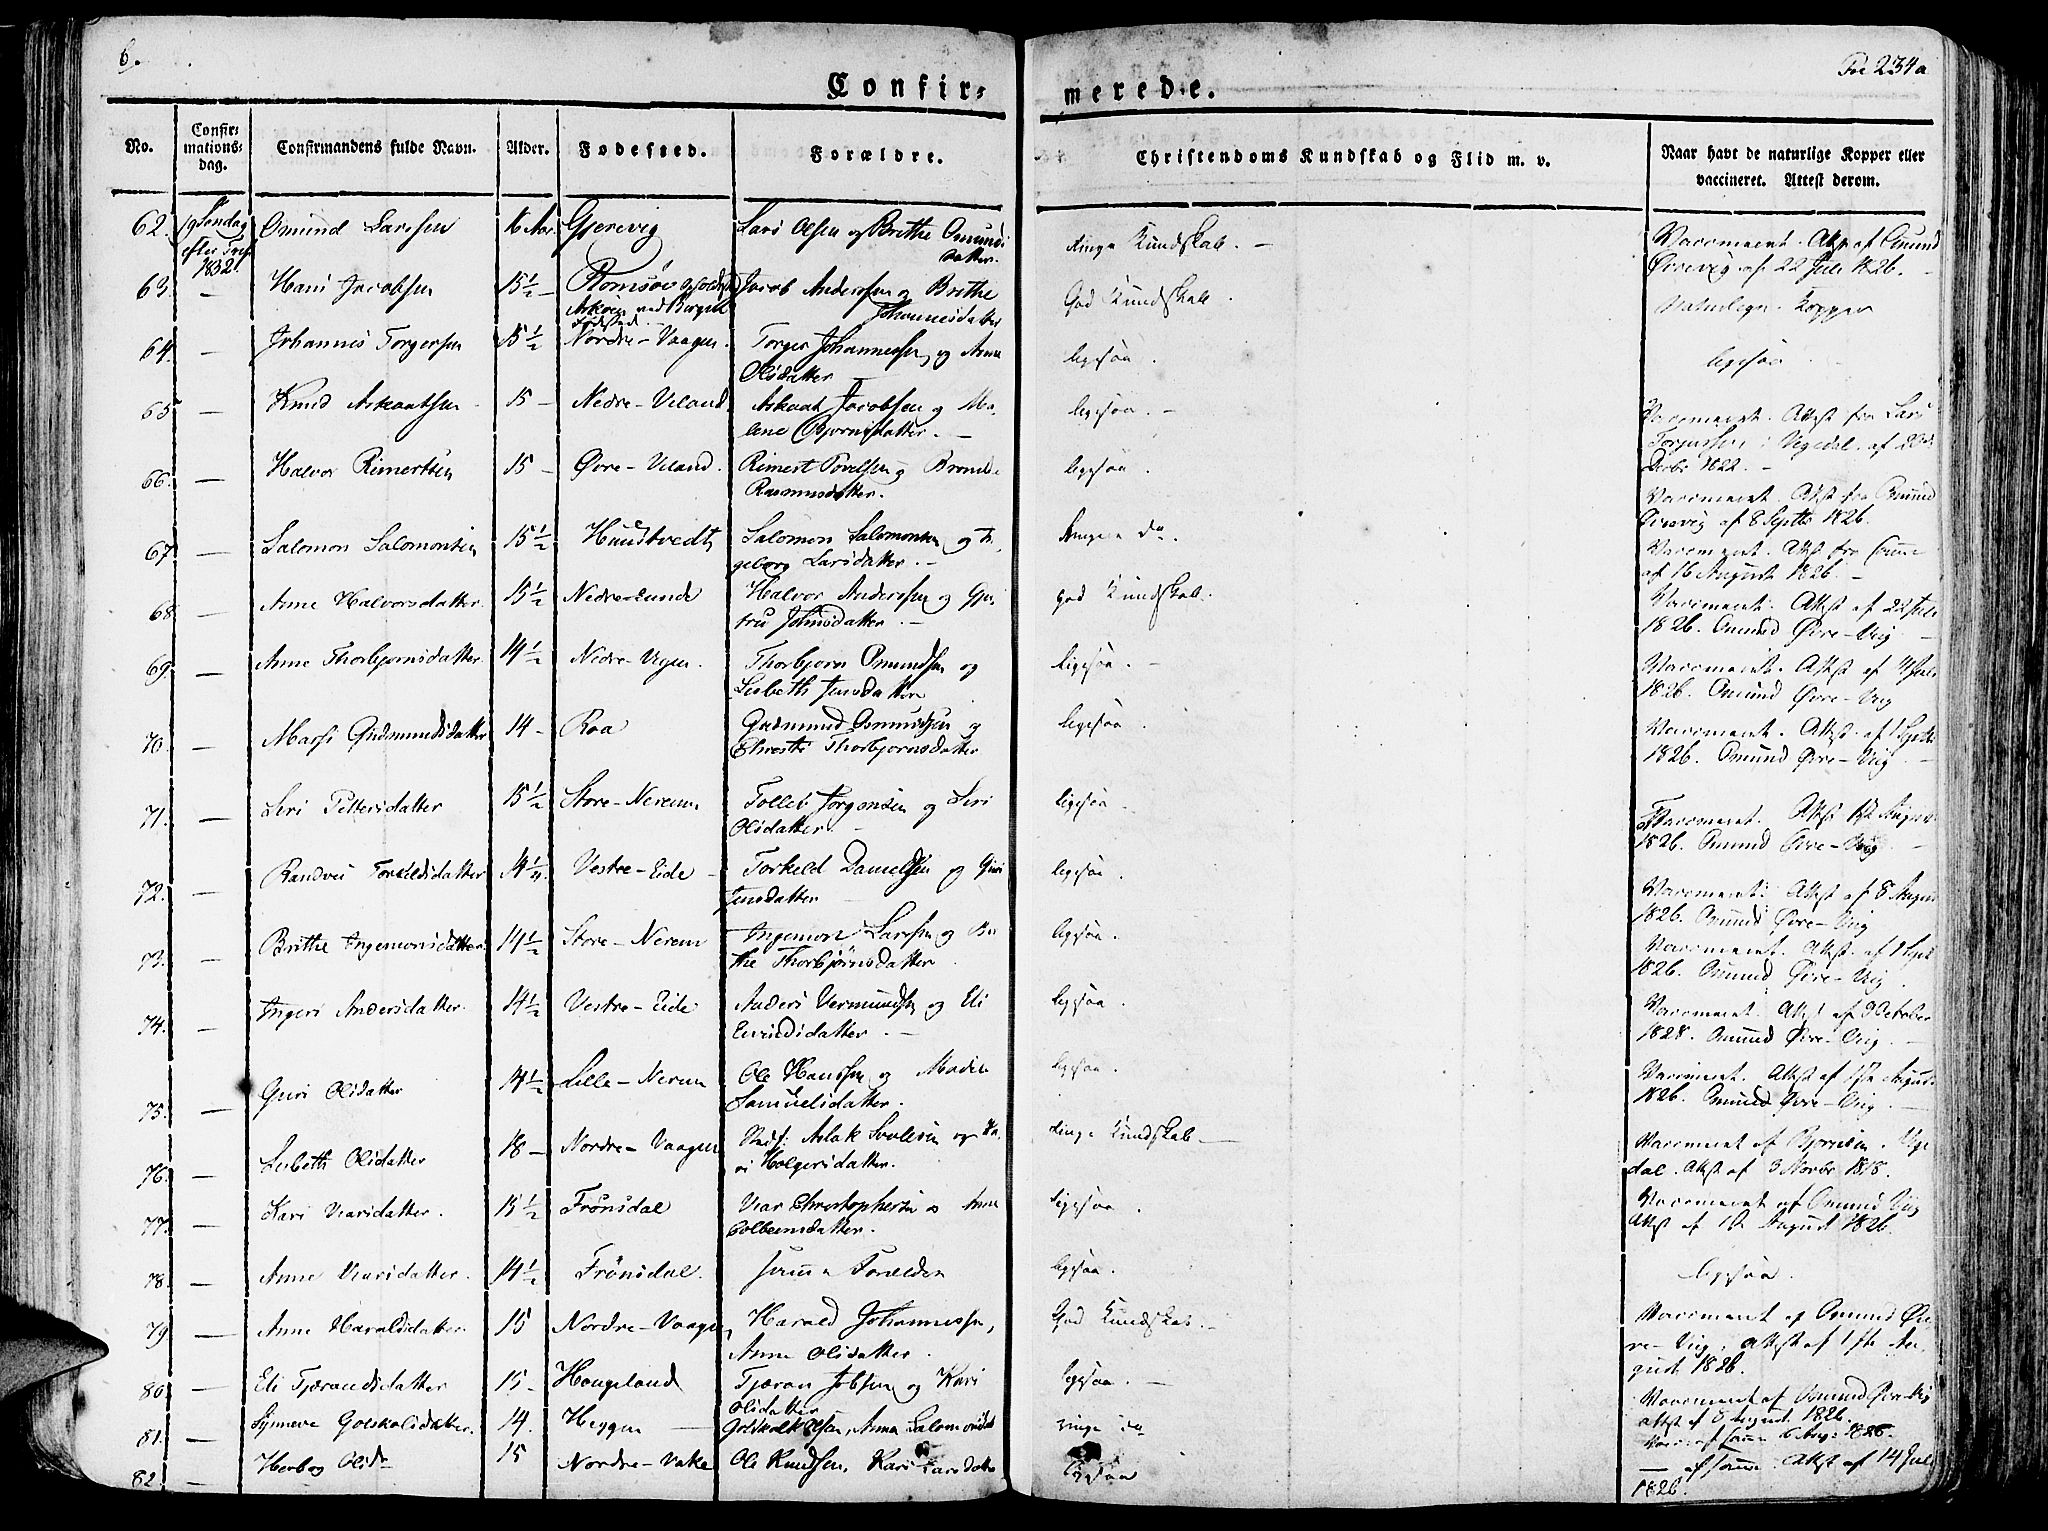 6.
Fol 234a
Confir-
merede.
No.
Confir-
mations-
dag.
Confirmandens fulde Navn.
Alder.
Fodested.
Forældre.
Christendoms Kundskab og Flid m. v.
Naar havt de naturlige Kopper eller
vaccineret. Attest derom.
62. 19 Søndag Omund Larssen 16 Aar Gjerevig Lars Olsen og Brithe Omunds
datter.
efter Tref
1832.
Ringe Kundskab. —
Vaccineret. Attest af Omund
Øvrevig af 22 Juli 1826. —
63. — Hans Jacobsen 15½ — Romsøe
Askøen ved Bergen
Fødested
Jacob Andersen og Brithe
Johannesdatter
God Kundskab.
Naturlige Kopper
64. — Johannes Torgersen 15½ Nordre-Vaagen. Torger Johannessen og Anna
Olsdatter
ligesaa.
ligesaa
65 — Knud Askaatsen 15 — Nedre-Veland. Askaat Jacobsen og Ma-
lene Bjørnsdatter. —
ligesaa. —
Vaccineret. Attest fra Lars
Torjussen i Vegedal. af 20de
Decbr 1822. —
66. — Halvor Rimertsen 15 — Øvre-Veland. Rimert Povelsen og
Rasmusdatter.
ligesaa.
Vaccineret. Attest fra Omund
Øvrevig af 8 Septbr 1826.
67. — Salomon Salomonsen 15½ Haustvedt Salomon Salomonsen og In-
geborg Larsdatter. —
Ringe do.
Vaccineret. Attest fra samme
af 16 August 1826. —
68 — Anne Halvorsdatter. 15½ Nedre-Lunde Halvor Andersen og Gjer-
tru Johnsdatter. —
god Kundskab.
Vaccineret. Attest af 22 Juli
1826. Omund Øvre-Vig —
69. — Anne Thorbjørnsdatter. 14½ Nedre-Vegen. Thorbjørn Omundsen og
Lisbeth Jensdatter
ligesaa. —
Vaccineret. Attest af 4 Juli
1826. Omund Øvre-Vig
70. — Marsi Gudmundsdatter 14 — Roa Gudmund Osmundsen og
Christi Thorbjørnsdatter
ligesaa.
Vaccineret. Attest af 1 Septbr
1826. Omund Øvre-Vig —
71. — Siri Pettersdatter 15½ Store-Nerem Tolleb Jørgensen og Siri
Olsdatter. —
ligesaa.
Vaccineret. Attest 12 August
1826. Omund Øvre-Vig —
72. — Randvei Torkildsdatter 14¼ Vestre-Eide — Torkeld Danielsen og Guri
Jensdatter
ligesaa.
Vaccineret. Attest af 8 August
1826. Omund Øvre-Vig
73. — Brithe Ingemonsdatter. 14½ Store-Nerem Ingemon Larsen og Bri-
the Thorbjørnsdatter.
ligesaa.
Vaccineret. Attest. af 1 Sept
1826. Omund Øvre-Vig.
74. — Ingeri Andersdatter. 14½ Vestre-Eide Anders Vermundsen og Eli
Eivindsdatter. —
ligesaa.
Vaccineret. Attest af 9 October
1828. Omund Øvre-Vig. —
75. — Guri Olsdatter 14½ Lille-Nerem Ole Hansen og Madie
Samuelsdatter.
ligesaa.
Vaccineret. Attest af August
1826. Omund Øvre-Vig. —
76. — Lisbeth Olsdatter 18 — Nordre-Vaagen Aslak og Ka-
ri Holgersdatter.
Ringe Kundskab —
Vaccineret af Vege
dal. Attest af 3 Novbr 1818.
77. — Kari Viarsdatter. 15½ Frønsdal Viar Christophersen og Anna
Colbeensdatter.
ligesaa.
Vaccineret af Omund Vig
Attest af 12 August 1826.
78. — Anne Viarsdatter. 14½ Frønsdal. samme Forældre
ligesaa.
ligesaa.
79 — Anne Haraldsdatter 15 Nordre-Vaagen Harald Johannessen,
Anna Olsdatter.
God Kundskab. —
Vaccineret af Omund Øv-
re-Vig, Attest af 1ste Au-
gust 1826.
80. — Eli Tjærandsdatter 15 — Haugeland Tjæran Jobsen og Kari
Olsdatter
ligesaa. —
Vaccineret af Omund Øvre-Vig
Attest af 8 August. 1826.
81. — Synneve Gotskalsdatter. 14. Heggen — Gotskalk Olsen, Anna Salomonsdat
ringe do
Vacc. af samme 6 Aug: 1826.
82. — Herborg Olsdr 15 Nordre-Vake Ole Knudsen, Kari Larsdatter
ligesaa
— af samme. Attest af 14 Juli
1826.